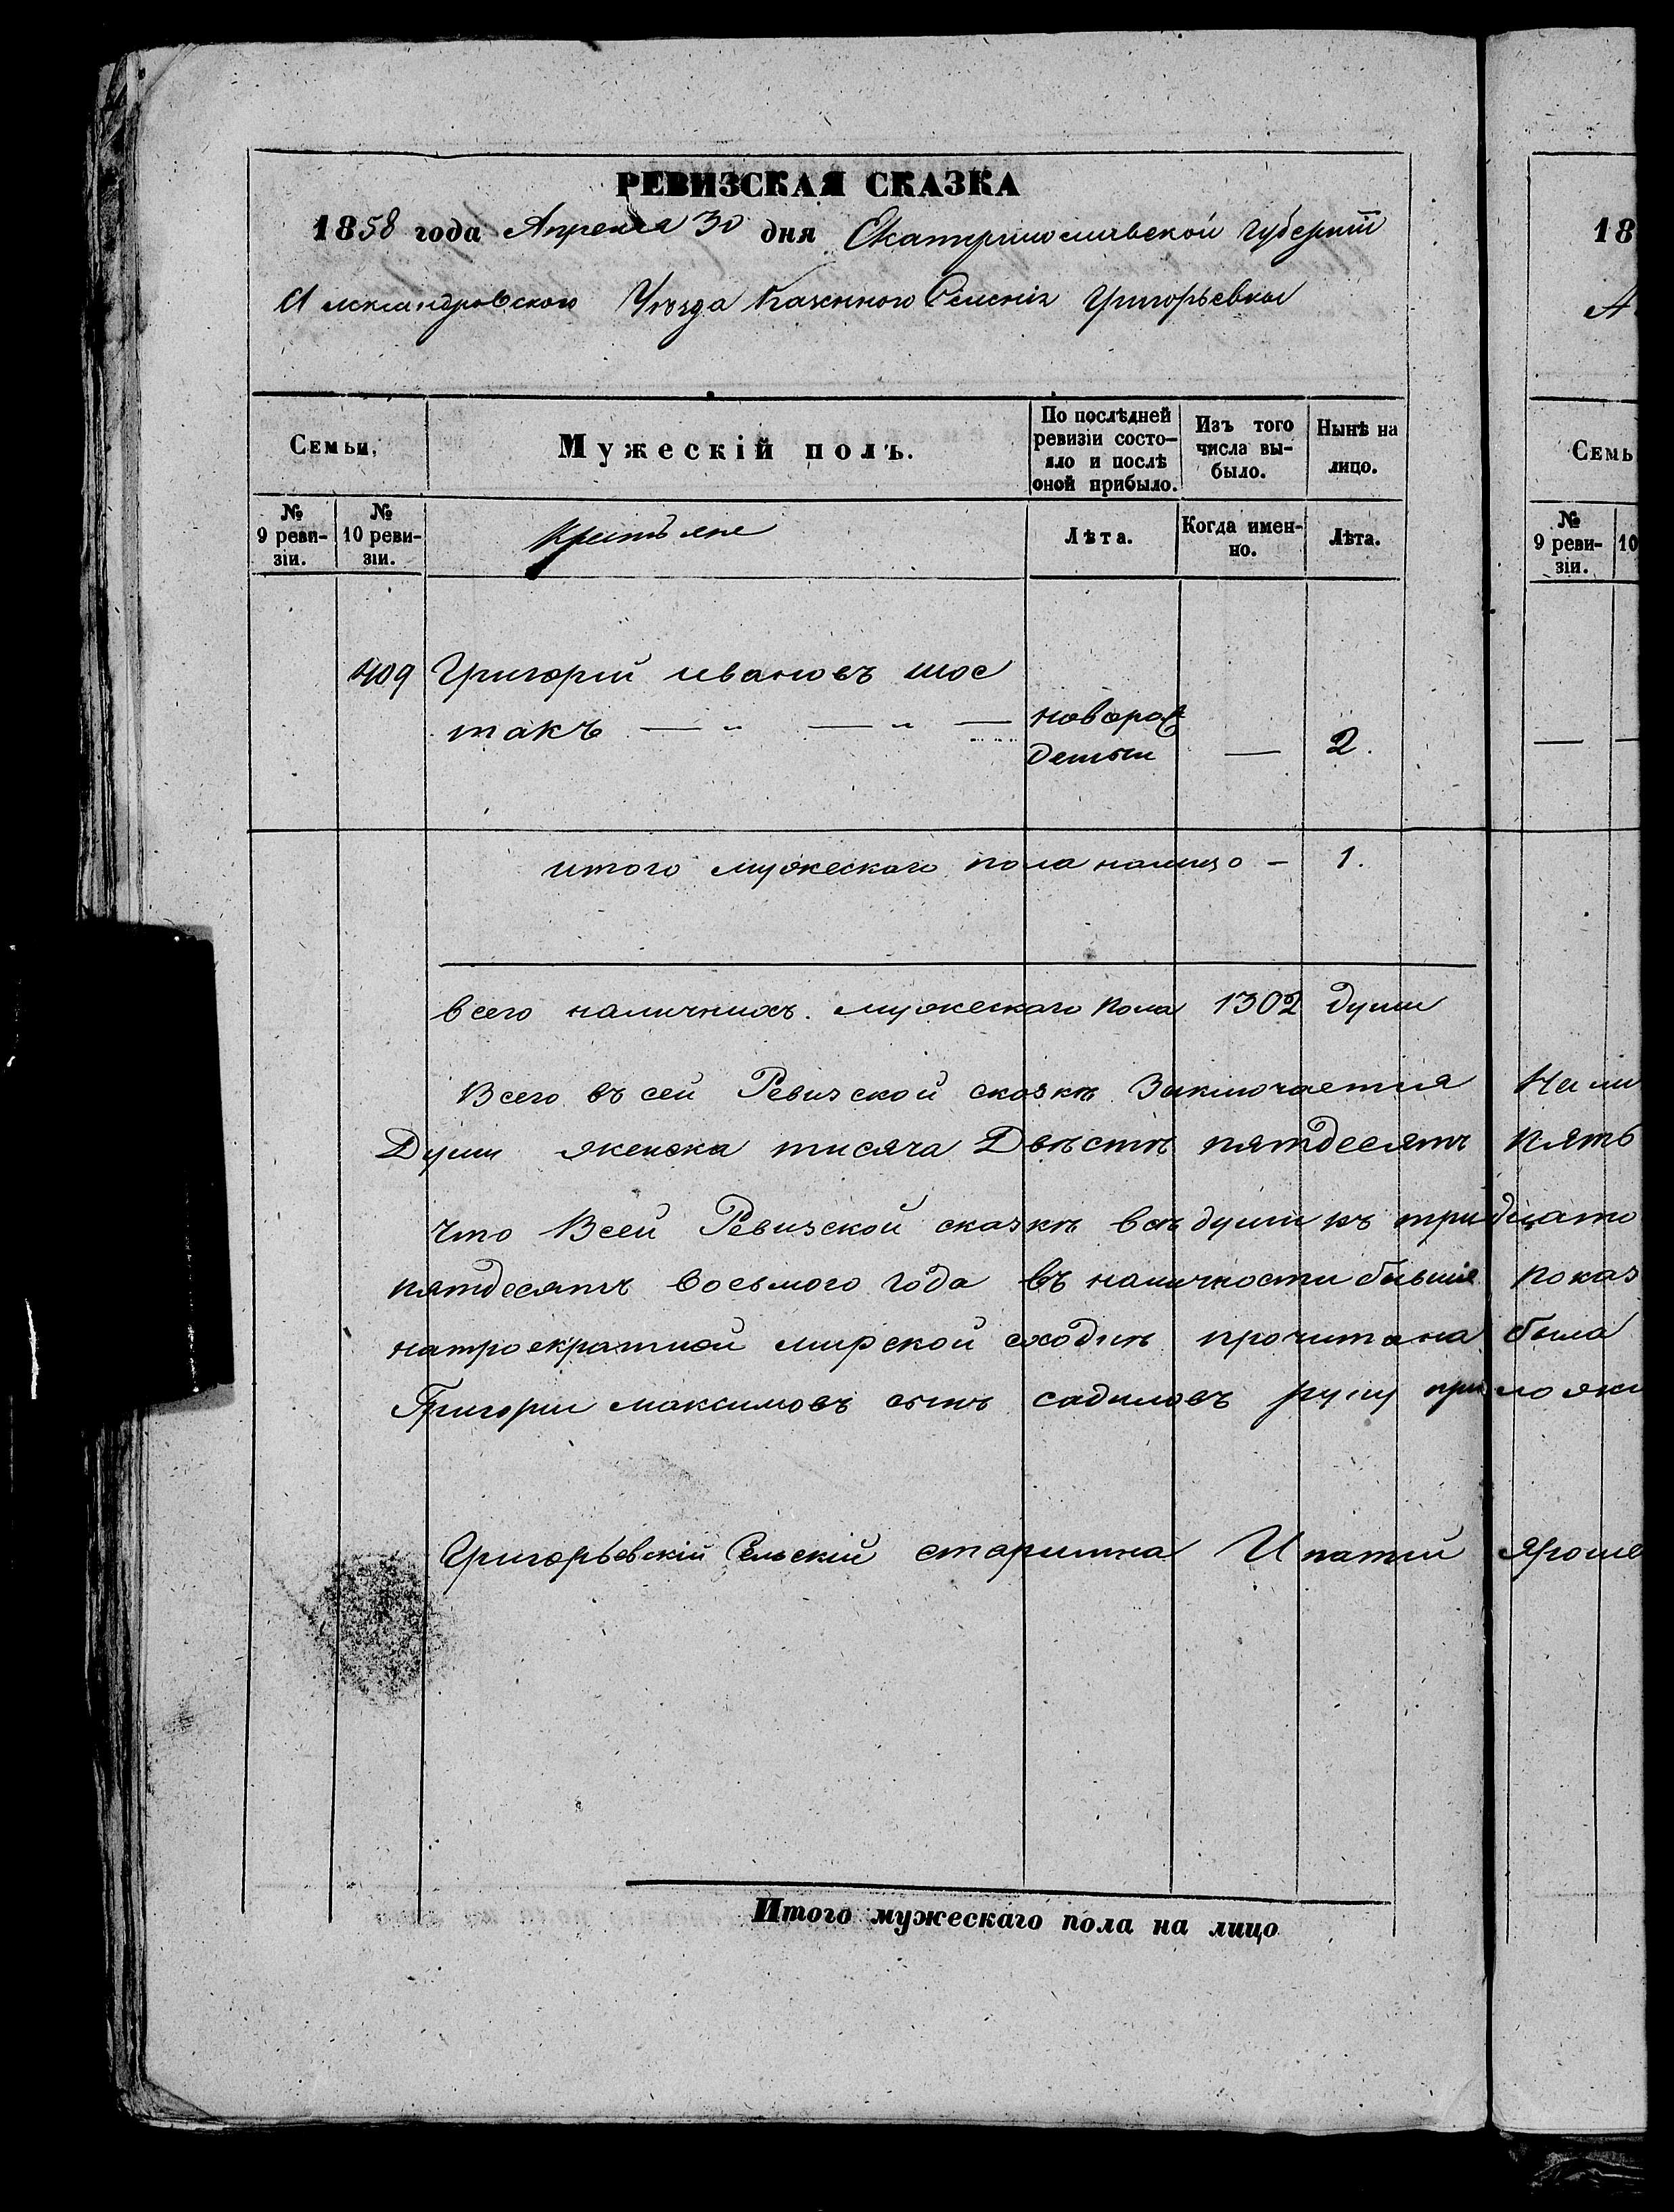 РЕВИЗСКАЯ СКАЗКА
1858 года Апреля 30 дня Екатеринославской губерніи
Александровского Уѣзда Казенного Селенія Григорьевки
18
А
Семьи,
Мужескій полъ.
По послѣдней ревизіи состо-
яло и послѣ
оной прибыло.
Изъ того
числа вы-
было.
Нынѣ на
лицо.
Семь
№
9 реви-
зіи.
№
10 реви-
зіи.
Крестьяне
Лѣта.
Когда имен-
но.
Лѣта.
№
9 реви-
зіи.
10
409 Григорій ивановъ шос
такъ — „ — „ — новорож
денъи — 2.
итого мужескаго пола налицо — 1.
всего наличнихъ. мужескаго пола 1302 души
Всего въ сей Ревизской сказкѣ Заключается Нали
Души женска тисяча Двѣстѣ пятдесятъ пять
Что Всей Ревизской сказкѣ всѣ души къ тридцато
пятдесятъ восьмого года въ наличности бывшіе показ
натроекратной мирской сходкѣ прочитана была
Григории максимовъ сынъ садиловъ руку приложи
Григорьевскій Сельскій старшина Ипатий Яроше
Итого мужескаго пола на лицо